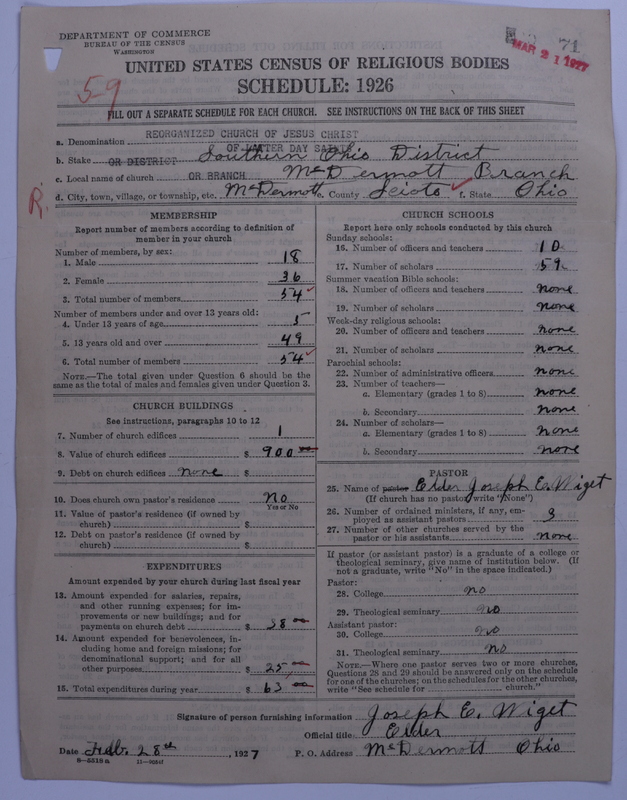 DEPARTMENT OF COMMERCE
BUREAU OF THE CENSUS
WASHINGTON
71
MAR 21 1927
UNITED STATES CENSUS OF RELIGIOUS BODIES
SCHEDULE: 1926
59
FILL OUT A SEPARATE SCHEDULE FOR EACH CHURCH. SEE INSTRUCTIONS ON THE BACK OF THIS SHEET
REORGANIZED CHURCH OF JESUS CHRIST
a. Denomination OF LATTER DAY SAINTS
b. Stake OR DISTRICT Southern Ohio District
c. Local name of church OR BRANCH McDermott Branch
R. d. City, town, village, or township, etc. McDermott e. County Scioto f. State Ohio
MEMBERSHIP
Report number of members according to definition of
member in your church
Number of members, by sex:
1. Male 18
2. Female 36
3. Total number of members 54
Number of members under and over 13 years old:
4. Under 13 years of age 5
5. 13 years old and over 49
6. Total number of members 54
NOTE.—The total given under Question 6 should be the
same as the total of males and females given under Question 3.
CHURCH BUILDINGS
See instructions, paragraphs 10 to 12
7. Number of church edifices 1
8. Value of church edifices $ 900 00
9. Debt on church edifices none $
10. Does church own pastor's residence no
Yes or No
11. Value of pastor's residence (if owned by
church) $
12. Debt on pastor's residence (if owned by
church) $
EXPENDITURES
Amount expended by your church during last fiscal year
13. Amount expended for salaries, repairs,
and other running expenses; for im-
provements or new buildings; and for
payments on church debt $ 38 00
14. Amount expended for benevolences, in-
cluding home and foreign missions; for
denominational support; and for all
other purposes $ 25 00
15. Total expenditures during year $ 63 00
CHURCH SCHOOLS
Report here only schools conducted by this church
Sunday schools:
16. Number of officers and teachers 10
17. Number of scholars 59
Summer vacation Bible schools:
18. Number of officers and teachers none
19. Number of scholars none
Week-day religious schools:
20. Number of officers and teachers none
21. Number of scholars none
Parochial schools:
22. Number of administrative officers none
23. Number of teachers—
a. Elementary (grades 1 to 8) none
b. Secondary none
24. Number of scholars—
a. Elementary (grades 1 to 8) none
b. Secondary none
PASTOR
25. Name of pastor Elder Joseph E. Wiget
(If church has no pastor, write "None")
26. Number of ordained ministers, if any, em-
ployed as assistant pastors 3
27. Number of other churches served by the
pastor or his assistants none
If pastor (or assistant pastor) is a graduate of a college or
theological seminary, give name of institution below. (If
not a graduate, write "No" in the space indicated.)
Pastor:
28. College no
29. Theological seminary no
Assistant pastor:
30. College no
31. Theological seminary no
NOTE.—Where one pastor serves two or more churches,
Questions 28 and 29 should be answered only on the schedule
for one of the churches; on the schedules for the other churches,
write "See schedule for church."
Signature of person furnishing information Joseph E. Wiget
Official title Elder
Date Feb. 28th, 1927 P. O. Address McDermott Ohio
8-5518a